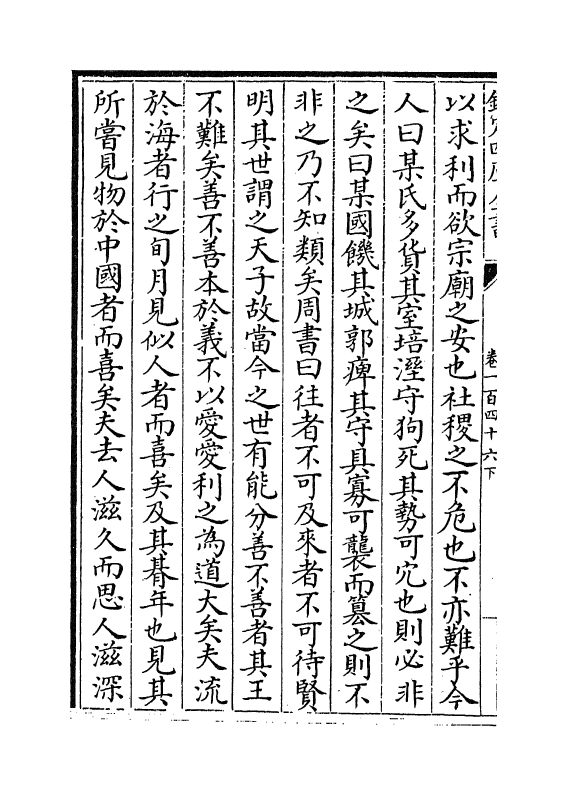 欽定四庫全書
卷一百四十六下
以求利而欲宗廟之安也社稷之不危也不亦難乎今
人曰某氏多貨其室培溼守狗死其勢可穴也則必非
之矣曰某國饑其城郭痺其守具寡可襲而篡之則不
非之乃不知類矣周書曰往者不可及來者不可待賢
明其世謂之天子故當今之世有能分善不善者其王
不難矣善不善本於義不以愛愛利之為道大矣夫流
於海者行之旬月見似人者而喜矣及其朞年也見其
所嘗見物於中國者而喜矣夫去人滋久而思人滋深